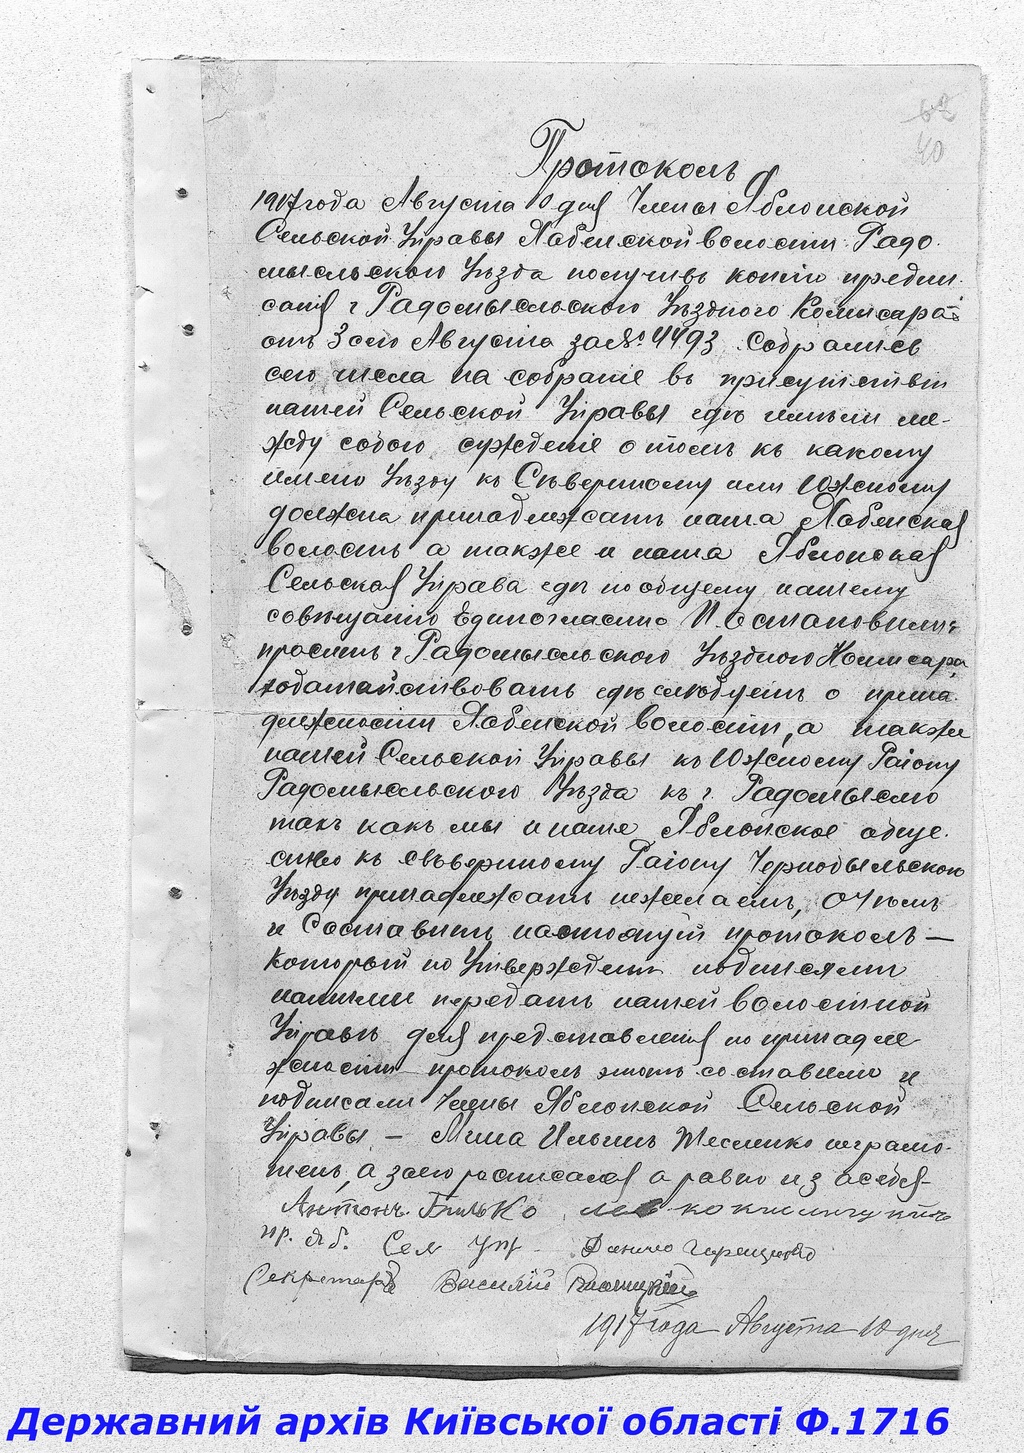 62
40
Протоколъ
1917 года Августа 10 дня Члены Яблонской
Сельской Управы Хабенской волости Радо-
мысльского Уѣзда получивъ копію предпи-
санія г Радомысльского Уѣздного Комисара
отъ 3 сего Августа за № 4493 Собрались
сего числа на собраніе въ присутствіи
нашей Сельской Управы гдѣ имѣли ме-
жду собою сужденіе о томъ къ какому
имено Уѣзду къ Сѣверному или Южному
должна принадлежать наша Хабенская
волость а также и наша Яблонская
Сельская Управа гдѣ по общему нашему
совѣщанію Единогласно Постановили:
просить г Радомысльского Уѣздного Комисара
ходатайствовать гдѣ слѣдуетъ о прина-
длежности Хабенской волости, а также
нашей Сельской Управы къ Южному Раіону
Радомысльского Уѣзда къ г. Радомыслю
такъ какъ мы и наше Яблонское обще-
ство къ сѣверному Раіону Чернобыльскому
Уѣзду принадлежать нежелаемъ, О чемъ
и Составить настоящій протоколъ —
который по Утвержденіи подписями
нашими передать нашей волостной
Управѣ для представленія по принадле-
жности протоколъ этотъ составили и
подписали Члены Яблонской Сельской
Управы — Миша Ильинъ неграмо-
тенъ, а за его росписался а равно и за себя
Антонъ Билько
пр. Яб. Сел Упр Данило
Секретарь Василій
1917 года Августа 10 дня
Державний архів Київської області Ф.1716